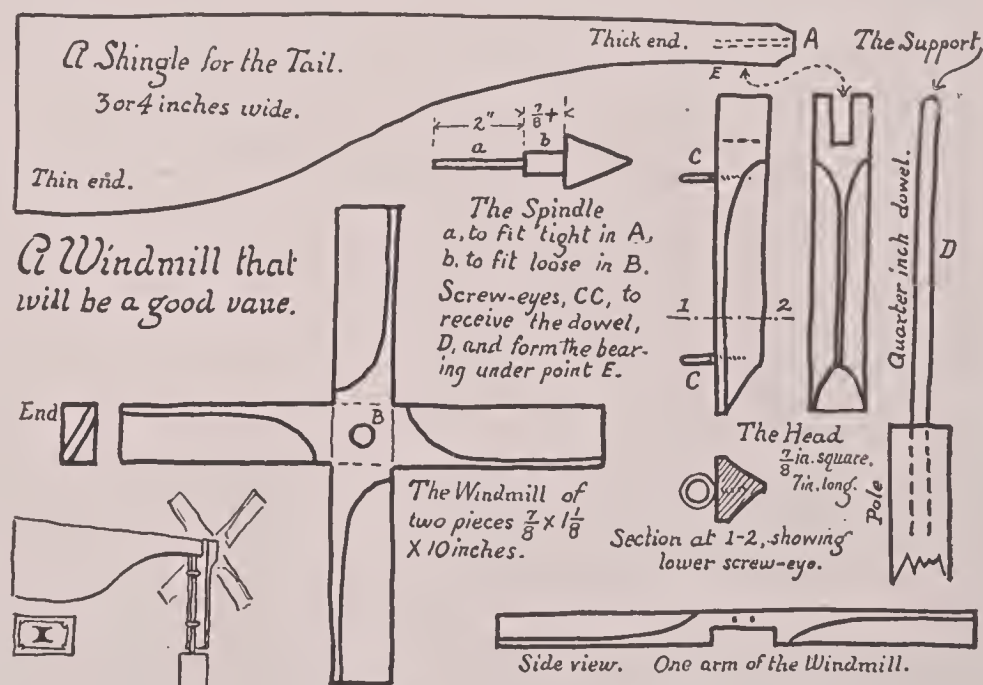 A Shingle for the Tail.
3 or 4 inches wide.
Thin end.
Thick end.
A
E
The Support
2"
7/8 +
a
b
The Spindle
a, to fit tight in A,
b. to fit loose in B.
Screw-eyes, CC, to
receive the dowel,
D, and form the bear-
ing under point E.
C
1
2
C
Quarter inch dowel.
D
Pole
A Windmill that
will be a good vane.
End
B
The Windmill of
two pieces 7/8 X 1 1/8
X 10 inches.
The Head
7/8 in. square.
7 in. long.
Section at 1-2, showing
lower screw-eye.
I
Side view. One arm of the Windmill.